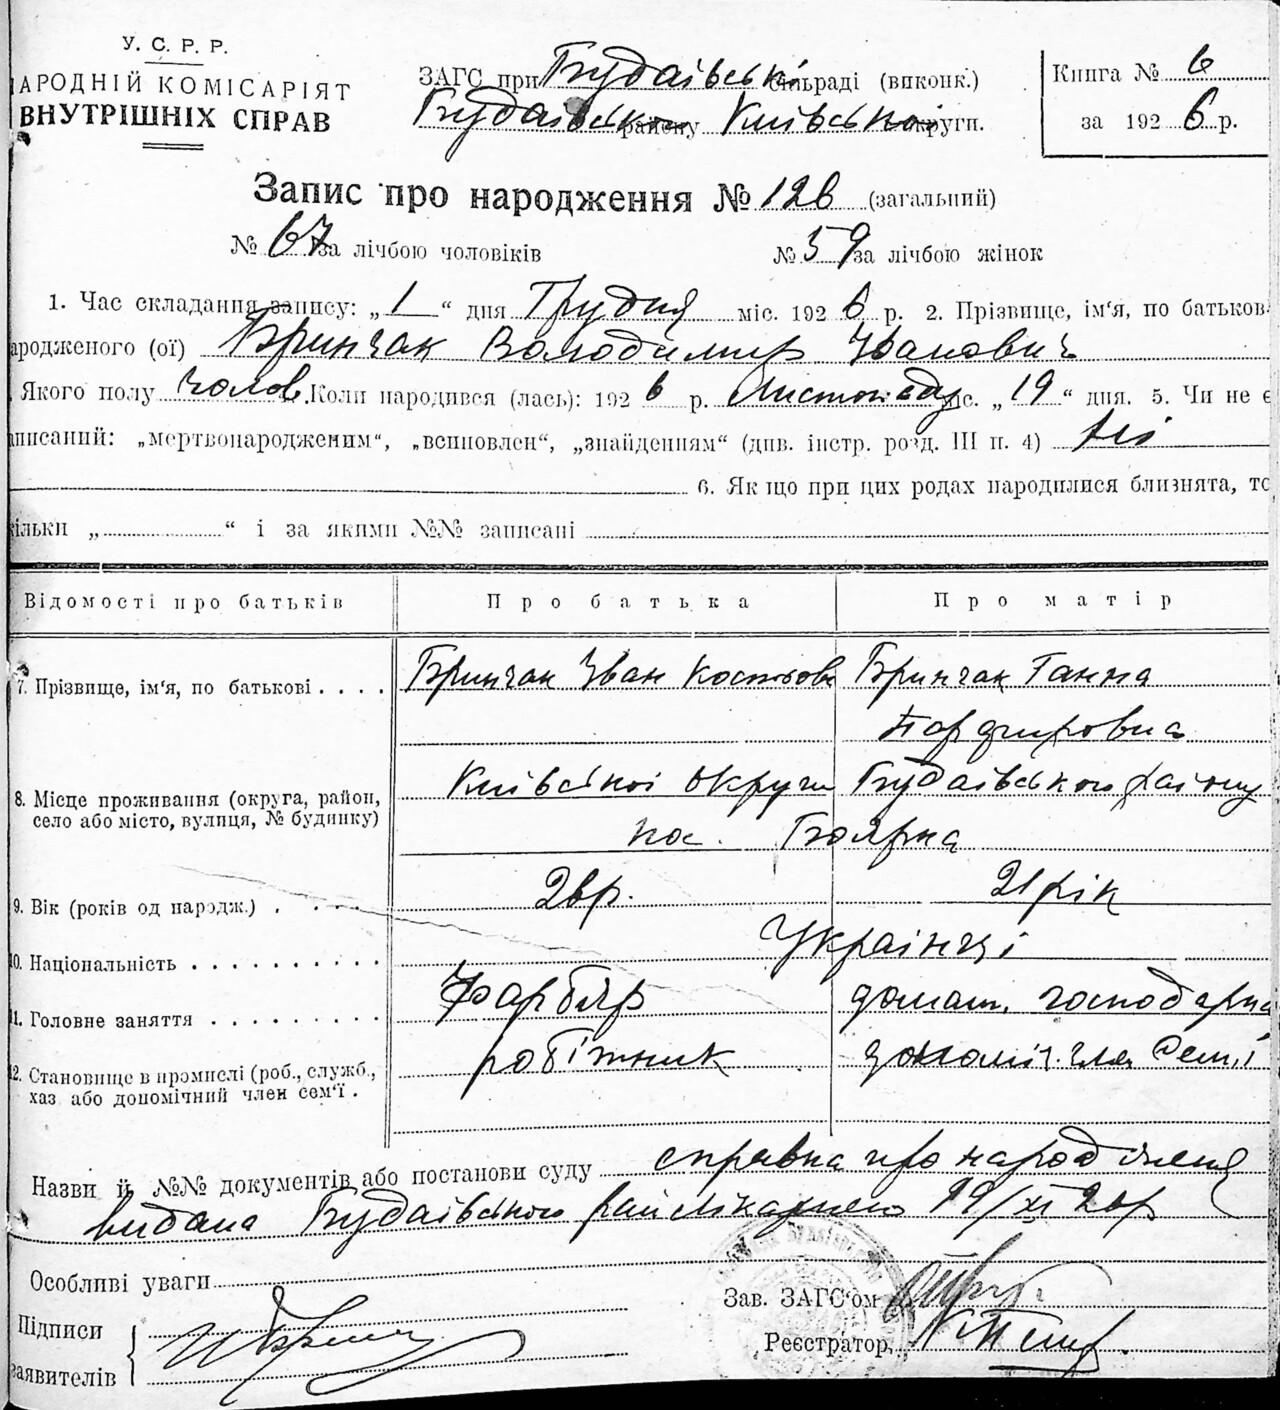 У. С. Р. Р.
АРОДНІЙ КОМІСАРІЯТ
ВНУТРІШНІХ СПРАВ
ЗАГС при Будаівські сільраді (виконк.)
Будаівського району Київської округи.
Книга № 6
за 1926 р.
Запис про народження № 126 (загальний)
№ 67 за лічбою чоловіків № 59 за лічбою жінок
1. Час складання запису: „1“ дня Грудня міс. 1926 р. 2. Прізвище, ім'я, по батьков
ародженого (ої) Бринчак Володимир Иванович
Якого полу чолов. Коли народився (лась): 1926 р. Листопаду міс. „19“ дня. 5. Чи не є
аписаний: „мертвонародженим“, „всиновлен“, „знайденням“ (див. інстр. розд. III п. 4) Ні
6. Якщо при цих родах народилися близнята, то
кільки „ “ і за якими №№ записані
Відомості про батьків Про батька Про матір
7. Прізвище, ім'я, по батькові . . . . Бринчак Иван Костьов Бринчак Ганна
Порфировна
8. Місце проживання (округа, район, село або місто, вулиця, № будинку) Київської округи Будаівського району
пос. Боярка
9. Вік (років од народж.) . . . . 26 р. 21 рік
10. Національність . . . . . . . . . . Українці
11. Головне заняття . . . . . . . . . Фарбяр домаш. господарка
12. Становище в промислі (роб., служб., хаз або допомічний член сем'ї . робітник допоміч. член семї
Назви й №№ документів або постанови суду справка про народження
видана Будаівського райлікарнею 29/XI 26р
Особливі уваги
Зав. ЗАГС'ом
Підписи
заявителів
Реєстратор,